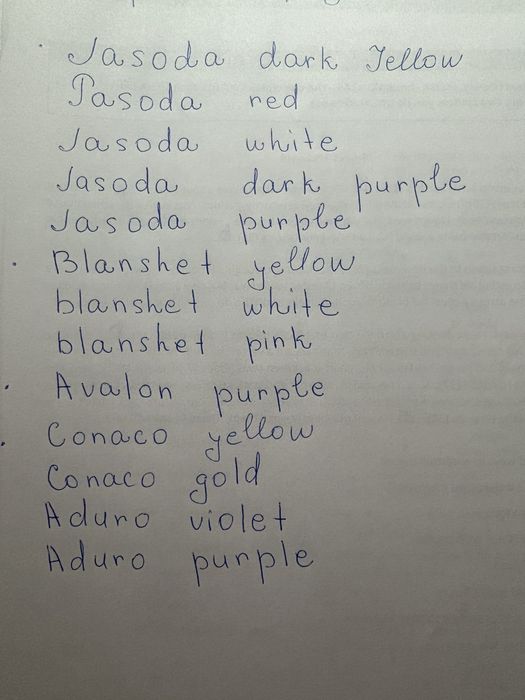 Jasoda dark Yellow
Jasoda red
Jasoda white
Jasoda dark purple
Jasoda purple
Blanshet yellow
blanshet white
blanshet pink
Avalon purple
Conaco yellow
Conaco gold
Aduro violet
Aduro purple